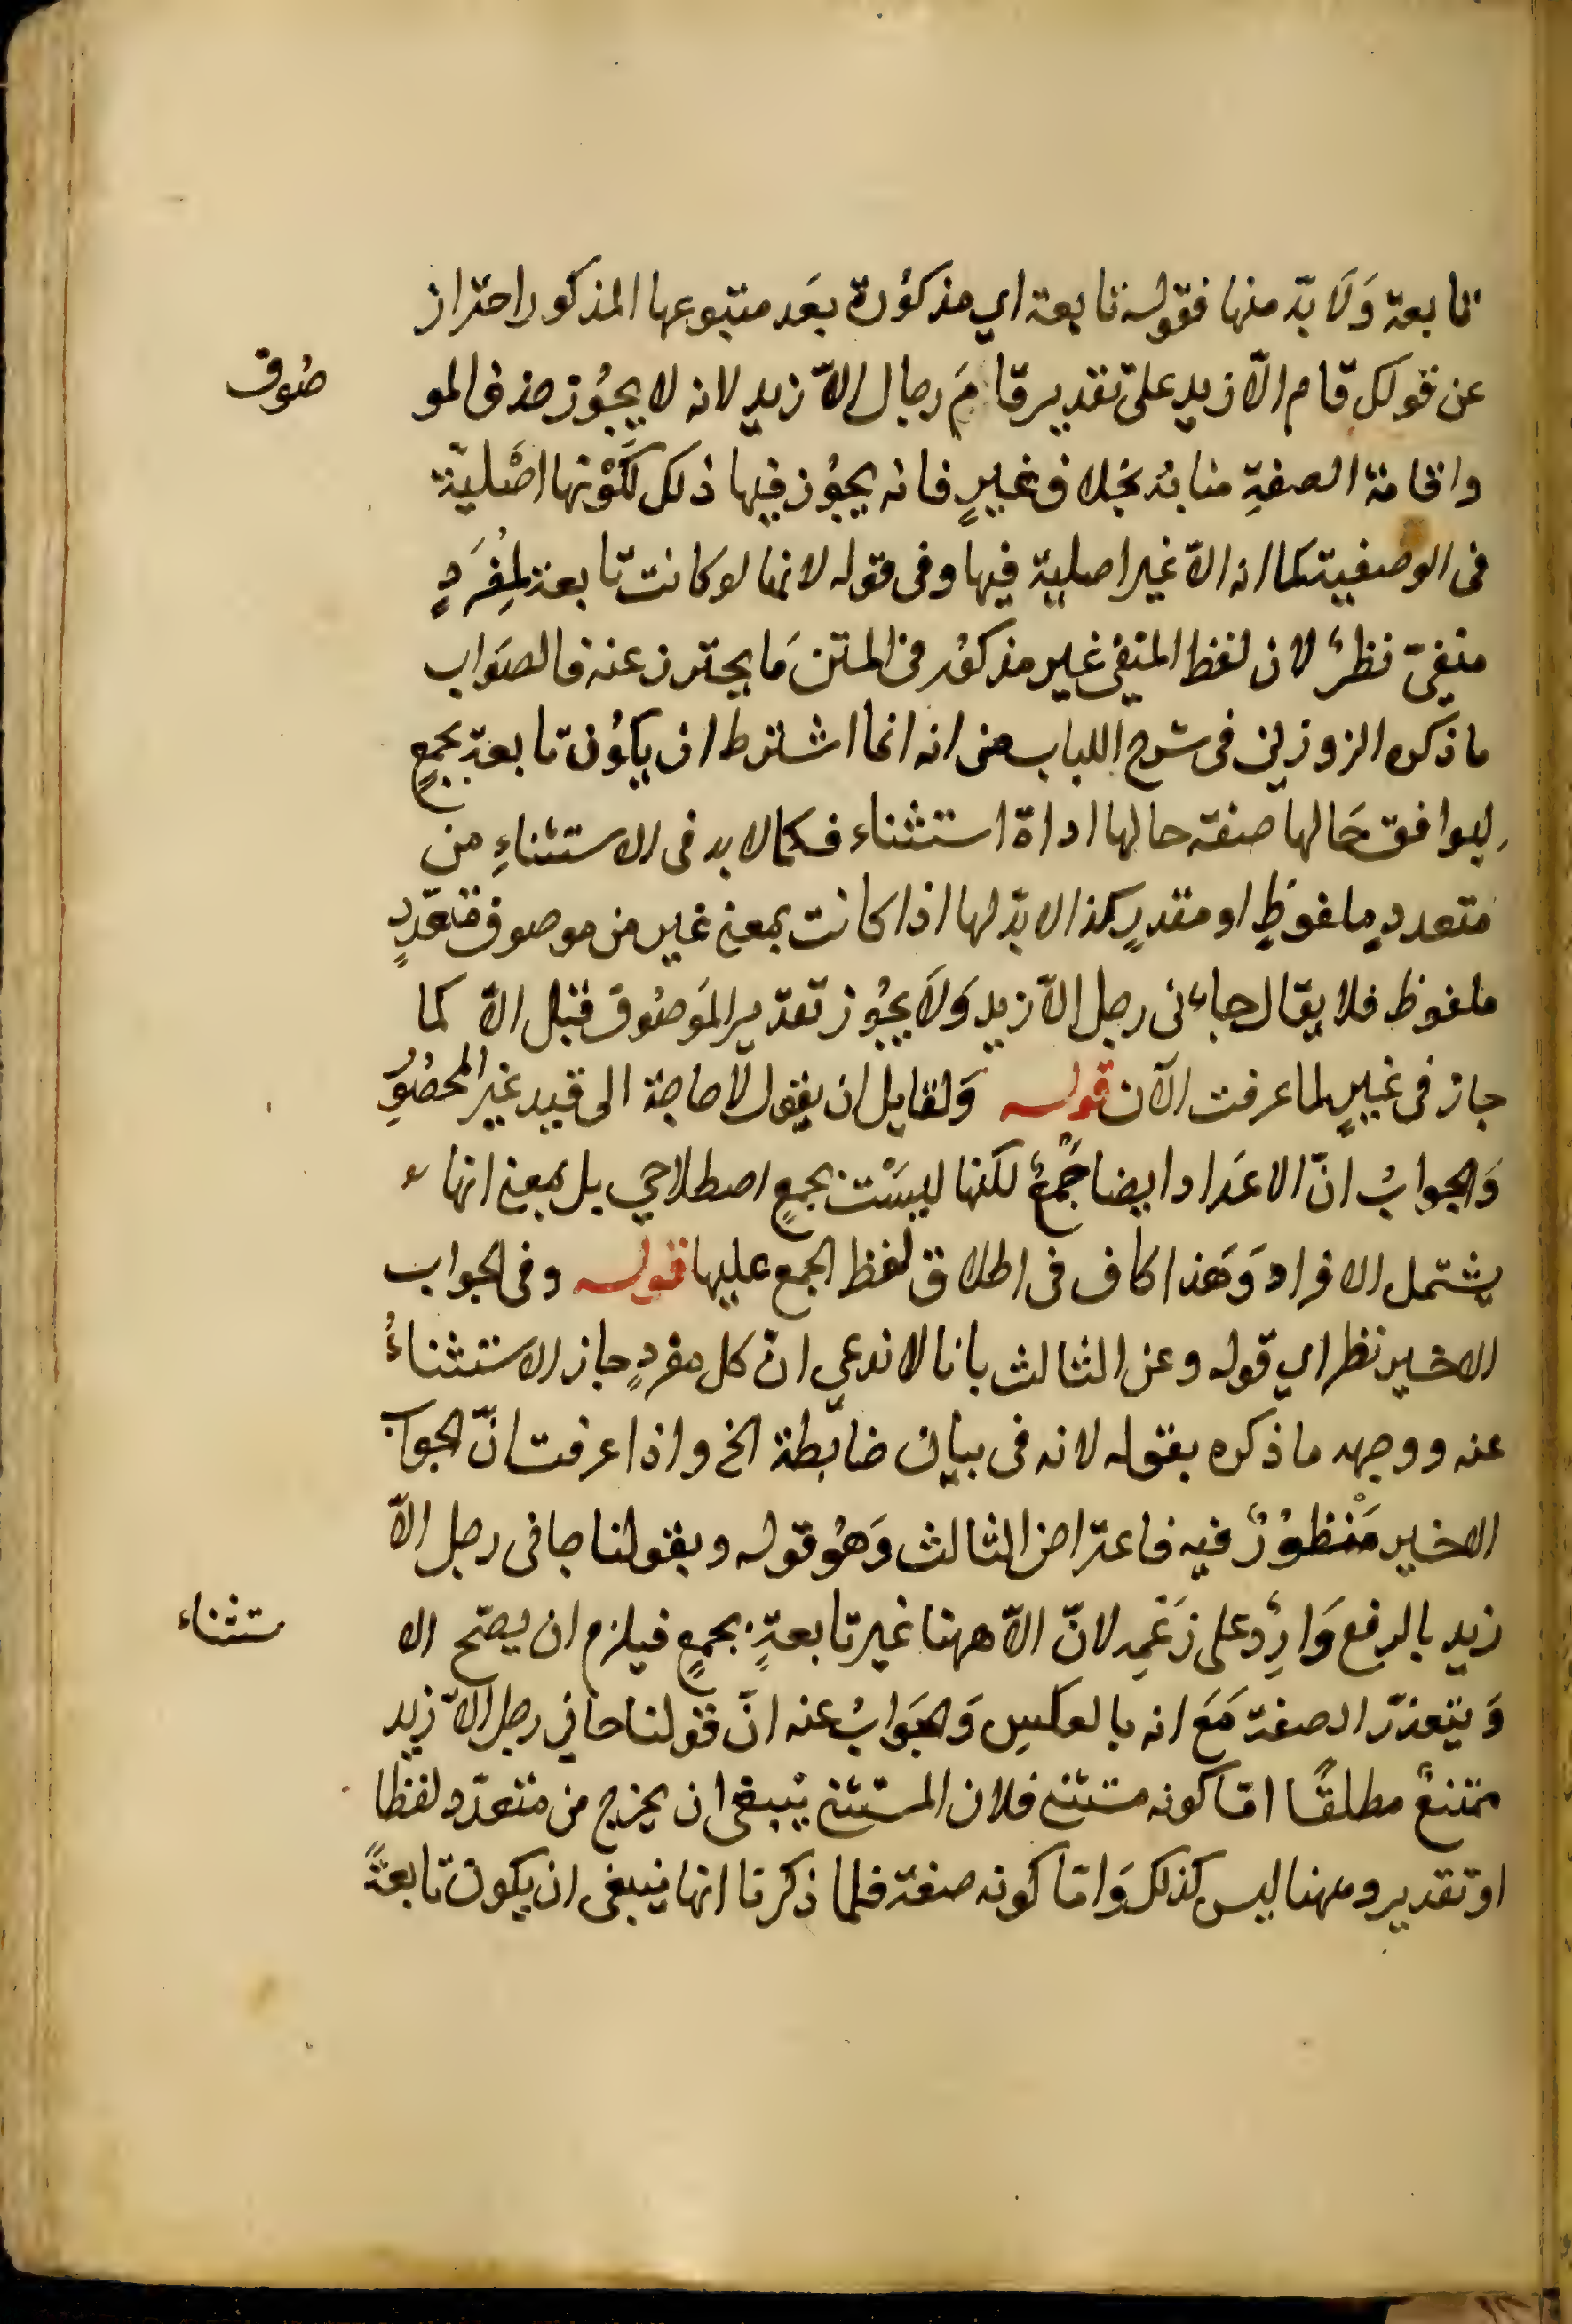 تابعة وَلَا بدّ منها فقوله تابعة اي مذكوُرة بعَد متبوعها المذكور احتراز
عن قولك قام الّا زيد على تقدير قامَ رجال الّا زيد لانه لا يجوُز حذف المو
صُوف
واقامة الصفةِ منابه بخلاف غيرٍ فانه يجوُز فيها ذلك لكَوْنها اصْلية
فى الوصفية كما انه الّا غير اصلية فيها وفى قوله لانها لو كانت تابعة لمُفرَدٍ
منفىّ نظرٌ لان لفظ المنفى غير مذكوُر فى المتن مَا يحترز عنه فالصوَاب
ما ذكره الزوزني فى شرح اللباب من انه انما اشترط ان يكوُن تابعة بجمعٍ
ليوافق حَالها صفة حالها اداة استثناء فكما لا بد فى الاستثناءِ من
متعددٍ ملفوظٍ او مقدرٍ كذا لا بدّ لها اذا كانت بمعنى غير من موصوف متعدّدٍ
ملفوظ فلا يقال جاءنى رجل الّا زيد وَلَا يجوُز تقدير الموَصوُف قبل الّا كما
جاز فى غيرٍ لما عرفت الآن قوله وَلقايل ان يقول لَا حاجة الى قيد غير المحصُوُرِ
وَالجوابُ انّ الاعدَاد ايضا جَمْعٌ لكنها ليسَتْ بجمعٍ اصطلاحي بل بمعنى انها
يشتمل الافراد وَهَذا كاف فى اطلاق لفظ الجمع عليها قوله وفى الجواب
الاخير نظر اي قوله وعن الثالث بانا لا ندعي انّ كل مفردٍ جاز الاستثناءُ
عنه ووجهه ما ذكره بقوله لانه فى بيان ضابطة الخ واذا عرفت انّ الجواب
الاخير مَنْظوُرٌ فيه فاعتراض الثالث وَهُو قوله وبقولنا جانى رجل الّا
زيد بالرفع وَارِدٌ على زَعْمِه لانّ الّا ههنا غير تابعةٍ بجمعٍ فيلزم ان يصحّ الا
ستثناء
وَيتعذّر الصفة مَعَ انه بالعكسِ وَالجوَابُ عنه انّ قولنا جاني رجل الّا زيد
ممتنعٌ مطلقًا امّا كونه مستثنى فلان المستثنى ينبغى ان يخرج من متعدّد لفظا
او تقدير وههنا ليس كذلك وَامّا كونه صفة فلما ذكرنا انها ينبغى ان يكون تابعةً